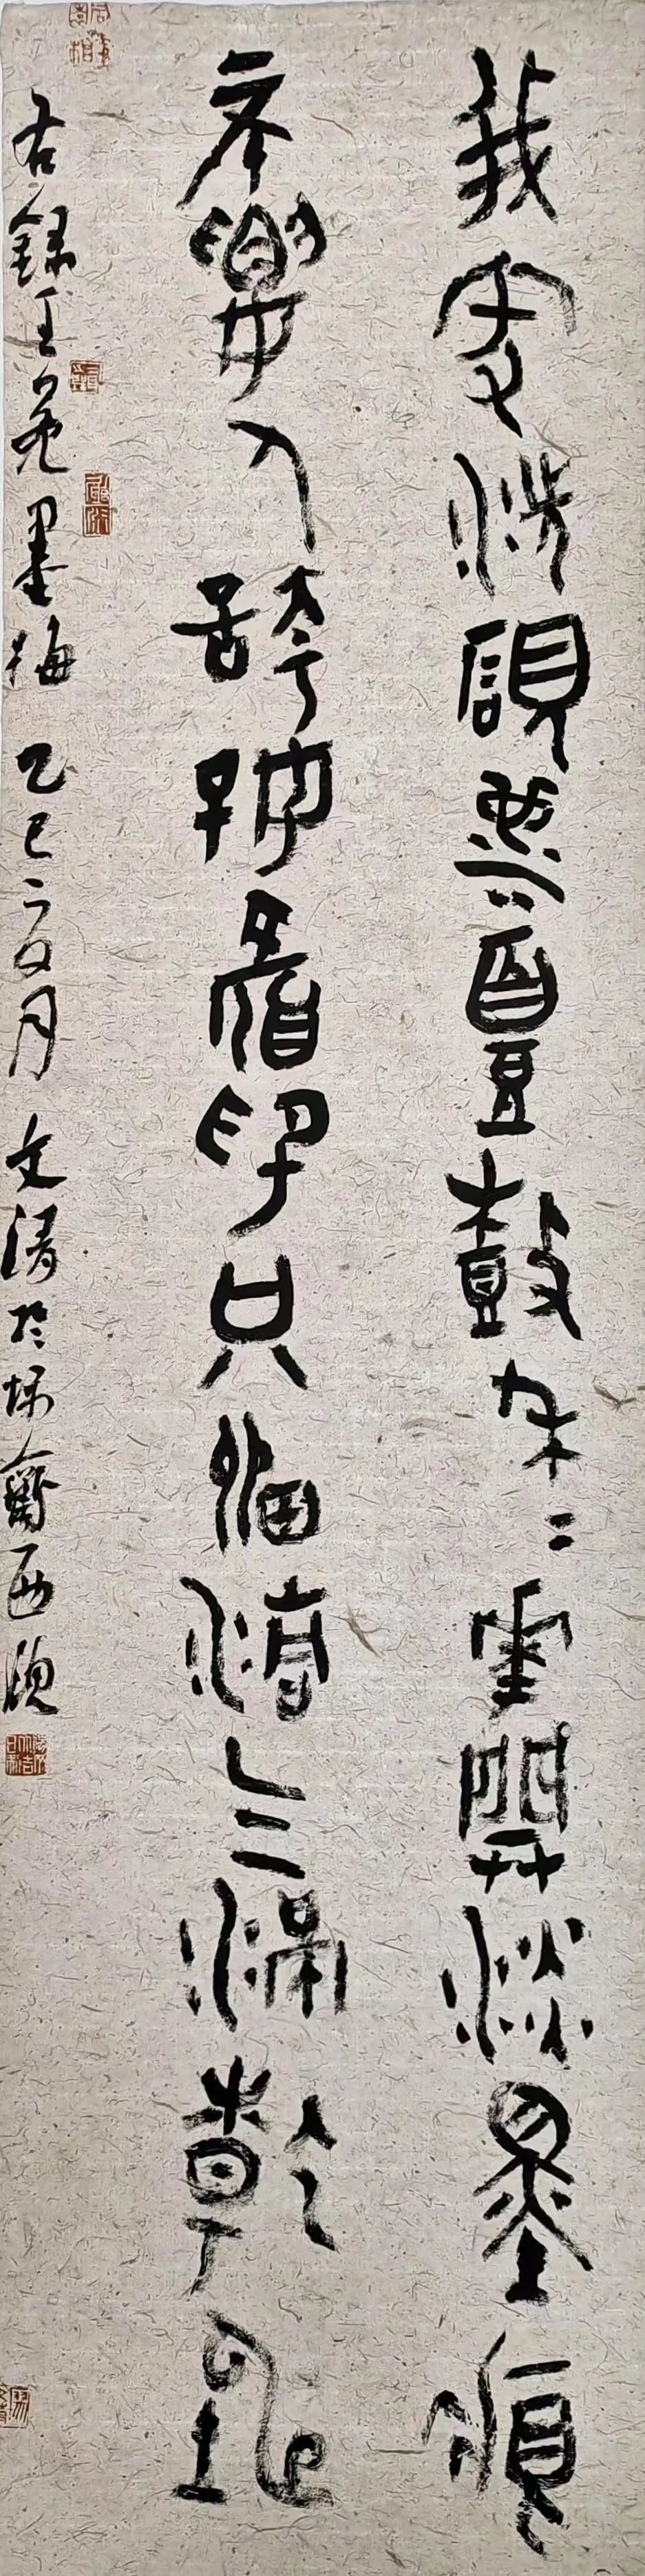 我家洗硯池頭樹朵〻花開淡墨痕
不要人誇好顏色只留清气滿乾坤
右錄王冕墨梅 乙巳二友月 文清於 齋西窗